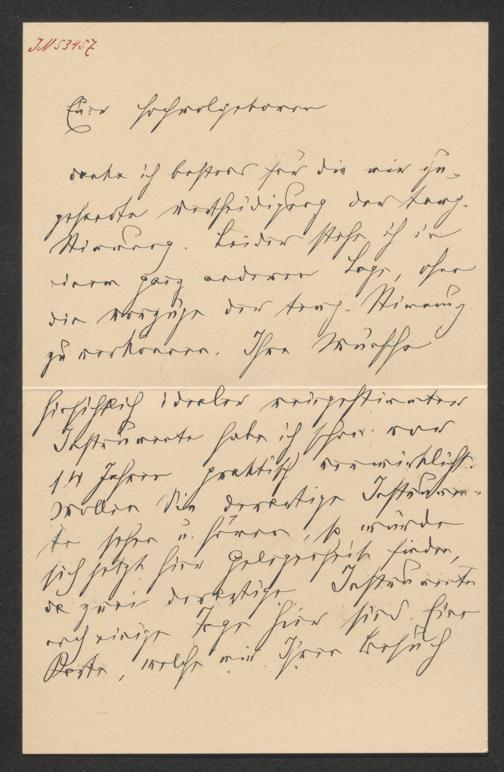 IN 53457
Euer Hochwolgeboren
danke ich bestens für die mir zu-
gesandte Vertheidigung der temp.
Stimmung. Leider stehe ich in
einem ganz anderen Lager, ohne
die Vorzüge der temp. Stimmung
zu verkennen. Ihre Wünsche
hinsichtlich idealer reingestimmter
Instrumente habe ich schon vor
14 Jahren praktisch verwirklicht.
Wollen Sie derartige Instrumen-
te sehen u. hören, so würde
sich jetzt hier Gelegenheit finden,
da zwei derartige Instrumente
noch einige Tage hier sind. Eine
Karte, welche mir Ihren Besuch